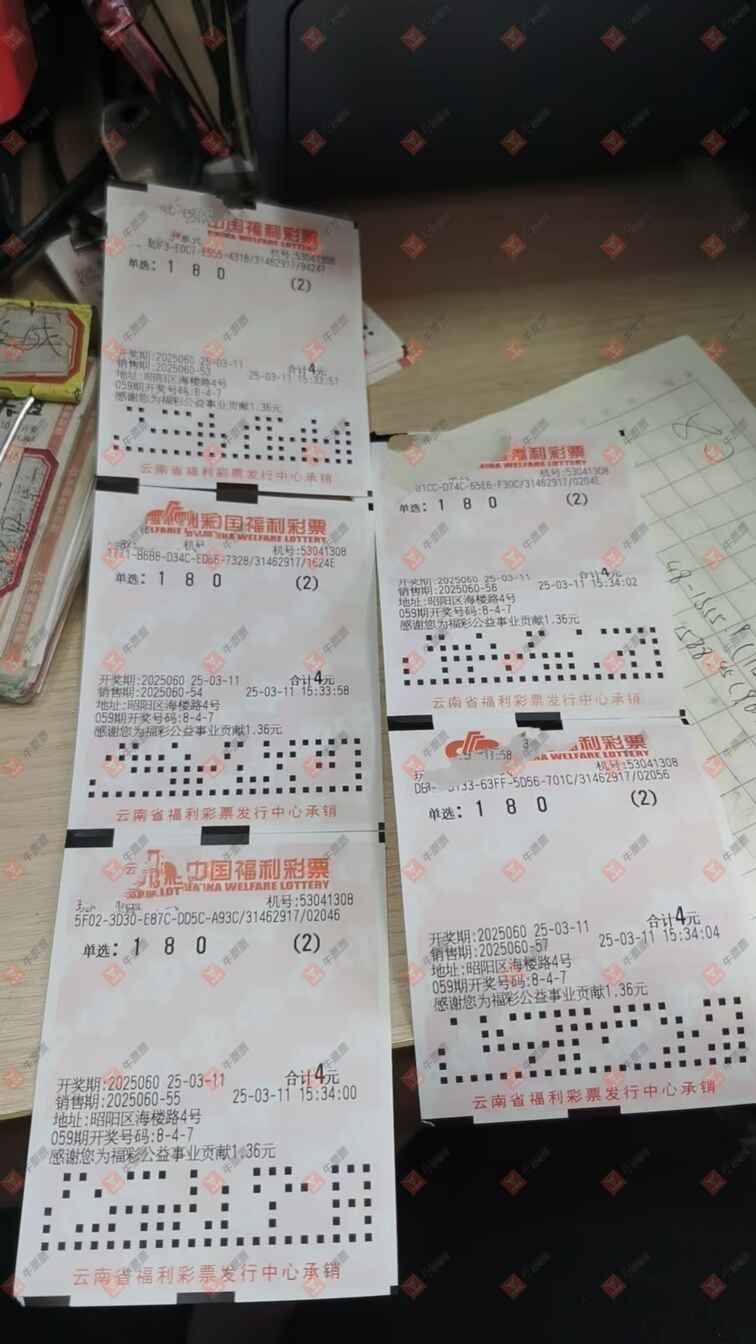 中国福利彩票
CHINA WELFARE LOTTERY
机号:53041308
单选:1 8 0 (2)
开奖期:2025060 25-03-11 合计4元
销售期:2025060-53 25-03-11 15:33:51
地址:昭阳区海楼路4号
059期开奖号码:8-4-7
感谢您为福彩公益事业贡献1.36元
云南省福利彩票发行中心承销
国福利彩票
机号:53041308
B6B8-D34C-ED66-7328/31462917/1624E
单选:1 8 0 (2)
开奖期:2025060 25-03-11 合计4元
销售期:2025060-54 25-03-11 15:33:58
地址:昭阳区海楼路4号
059期开奖号码:8-4-7
感谢您为福彩公益事业贡献1.36元
云南省福利彩票发行中心承销
中国福利彩票
INA WELFARE LOTTERY
机号:53041308
5F02-3D30-E87C-DD5C-A93C/31462917/02046
单选:1 8 0 (2)
开奖期:2025060 25-03-11 合计4元
销售期:2025060-55 25-03-11 15:34:00
地址:昭阳区海楼路4号
059期开奖号码:8-4-7
感谢您为福彩公益事业贡献1.36元
云南省福利彩票发行中心承销
福利彩票
WELFARE LOTTERY
机号:53041308
D74C-65E6-F30C/31462917/0204E
单选:1 8 0 (2)
开奖期:2025060 25-03-11 合计4元
销售期:2025060-56 25-03-11 15:34:02
地址:昭阳区海楼路4号
059期开奖号码:8-4-7
感谢您为福彩公益事业贡献1.36元
云南省福利彩票发行中心承销
福利彩票
WELFARE LOTTERY
机号:53041308
63FF-5D56-701C/31462917/02056
单选:1 8 0 (2)
开奖期:2025060 25-03-11 合计4元
销售期:2025060-57 25-03-11 15:34:04
地址:昭阳区海楼路4号
059期开奖号码:8-4-7
感谢您为福彩公益事业贡献1.36元
云南省福利彩票发行中心承销